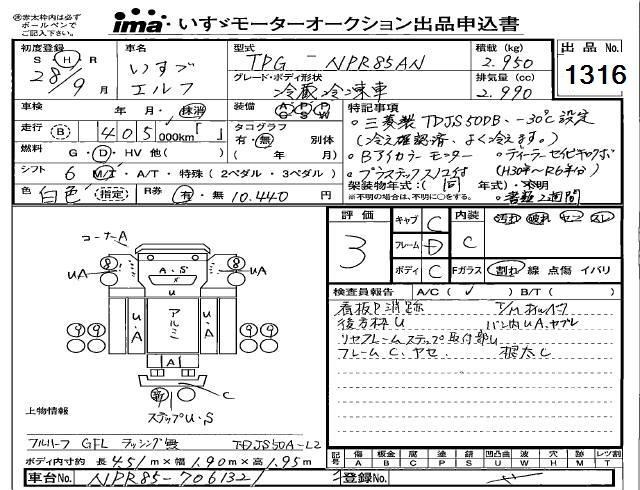 ※太枠内は必ず
ボールペンで
ご記入下さい。
ima いすゞモーターオークション出品申込書
初度登録 S H R 28/9月
車名 いすゞ エルフ
型式 TPG - NPR85AN
グレード・ボディ形状 冷蔵冷凍車
積載 (kg) 2.950
排気量 (cc) 2.990
出品 No.
1316
車検 年 月・抹消
装備 AC PS PW
走行 (B) 405,000km「 」
タコグラフ 有・無 別体
( 年 月)
燃料 G・D・HV 他( )
シフト 6 M/T・A/T・特殊(2ペダル・3ペダル)
色 白色 (指定) R券 有・無 10.440円
特記事項
・三菱製TDJS50DB、-30℃設定
(冷え確認済、よく冷えます。)
・Bアイカラーモニター ・ディーラーセイビキロクボ
(H30年~R6年分)
・プラスチックスノコ付
架装物年式:(同 年式)・不明
※不明の場合は、不明に○をする。
・書類2週間
評価 3
キャブ C
フレーム D
ボディ C
内装 C
Fガラス
汚れ 破れ ヤニ スレ
割れ 線 点傷 イバリ
検査員報告 A/C( ✓ ) B/T( )
看板P消跡 T/Mオルモレ
後方枠U バン内UA、ヤブレ
リヤフレームステップ取付部U
フレームC、ヤセ 根太C
コーナーA
8
UA
A・S
U
8
UA
U・A
アルミ
U・A
9 9
9 9
A
C
新
ステップU・S
上物情報
フルハーフ GFL ラッシング無 TDJS50A-L2
ボディ内寸約 長4.51m×幅1.90m×高1.95m
記号 傷 A 板金 B 腐 C 塗 P 錆 S 凹凸曲 U 波 W 穴 H 欠 M レツ割 T
車台No. NPR85-7061321
登録No.